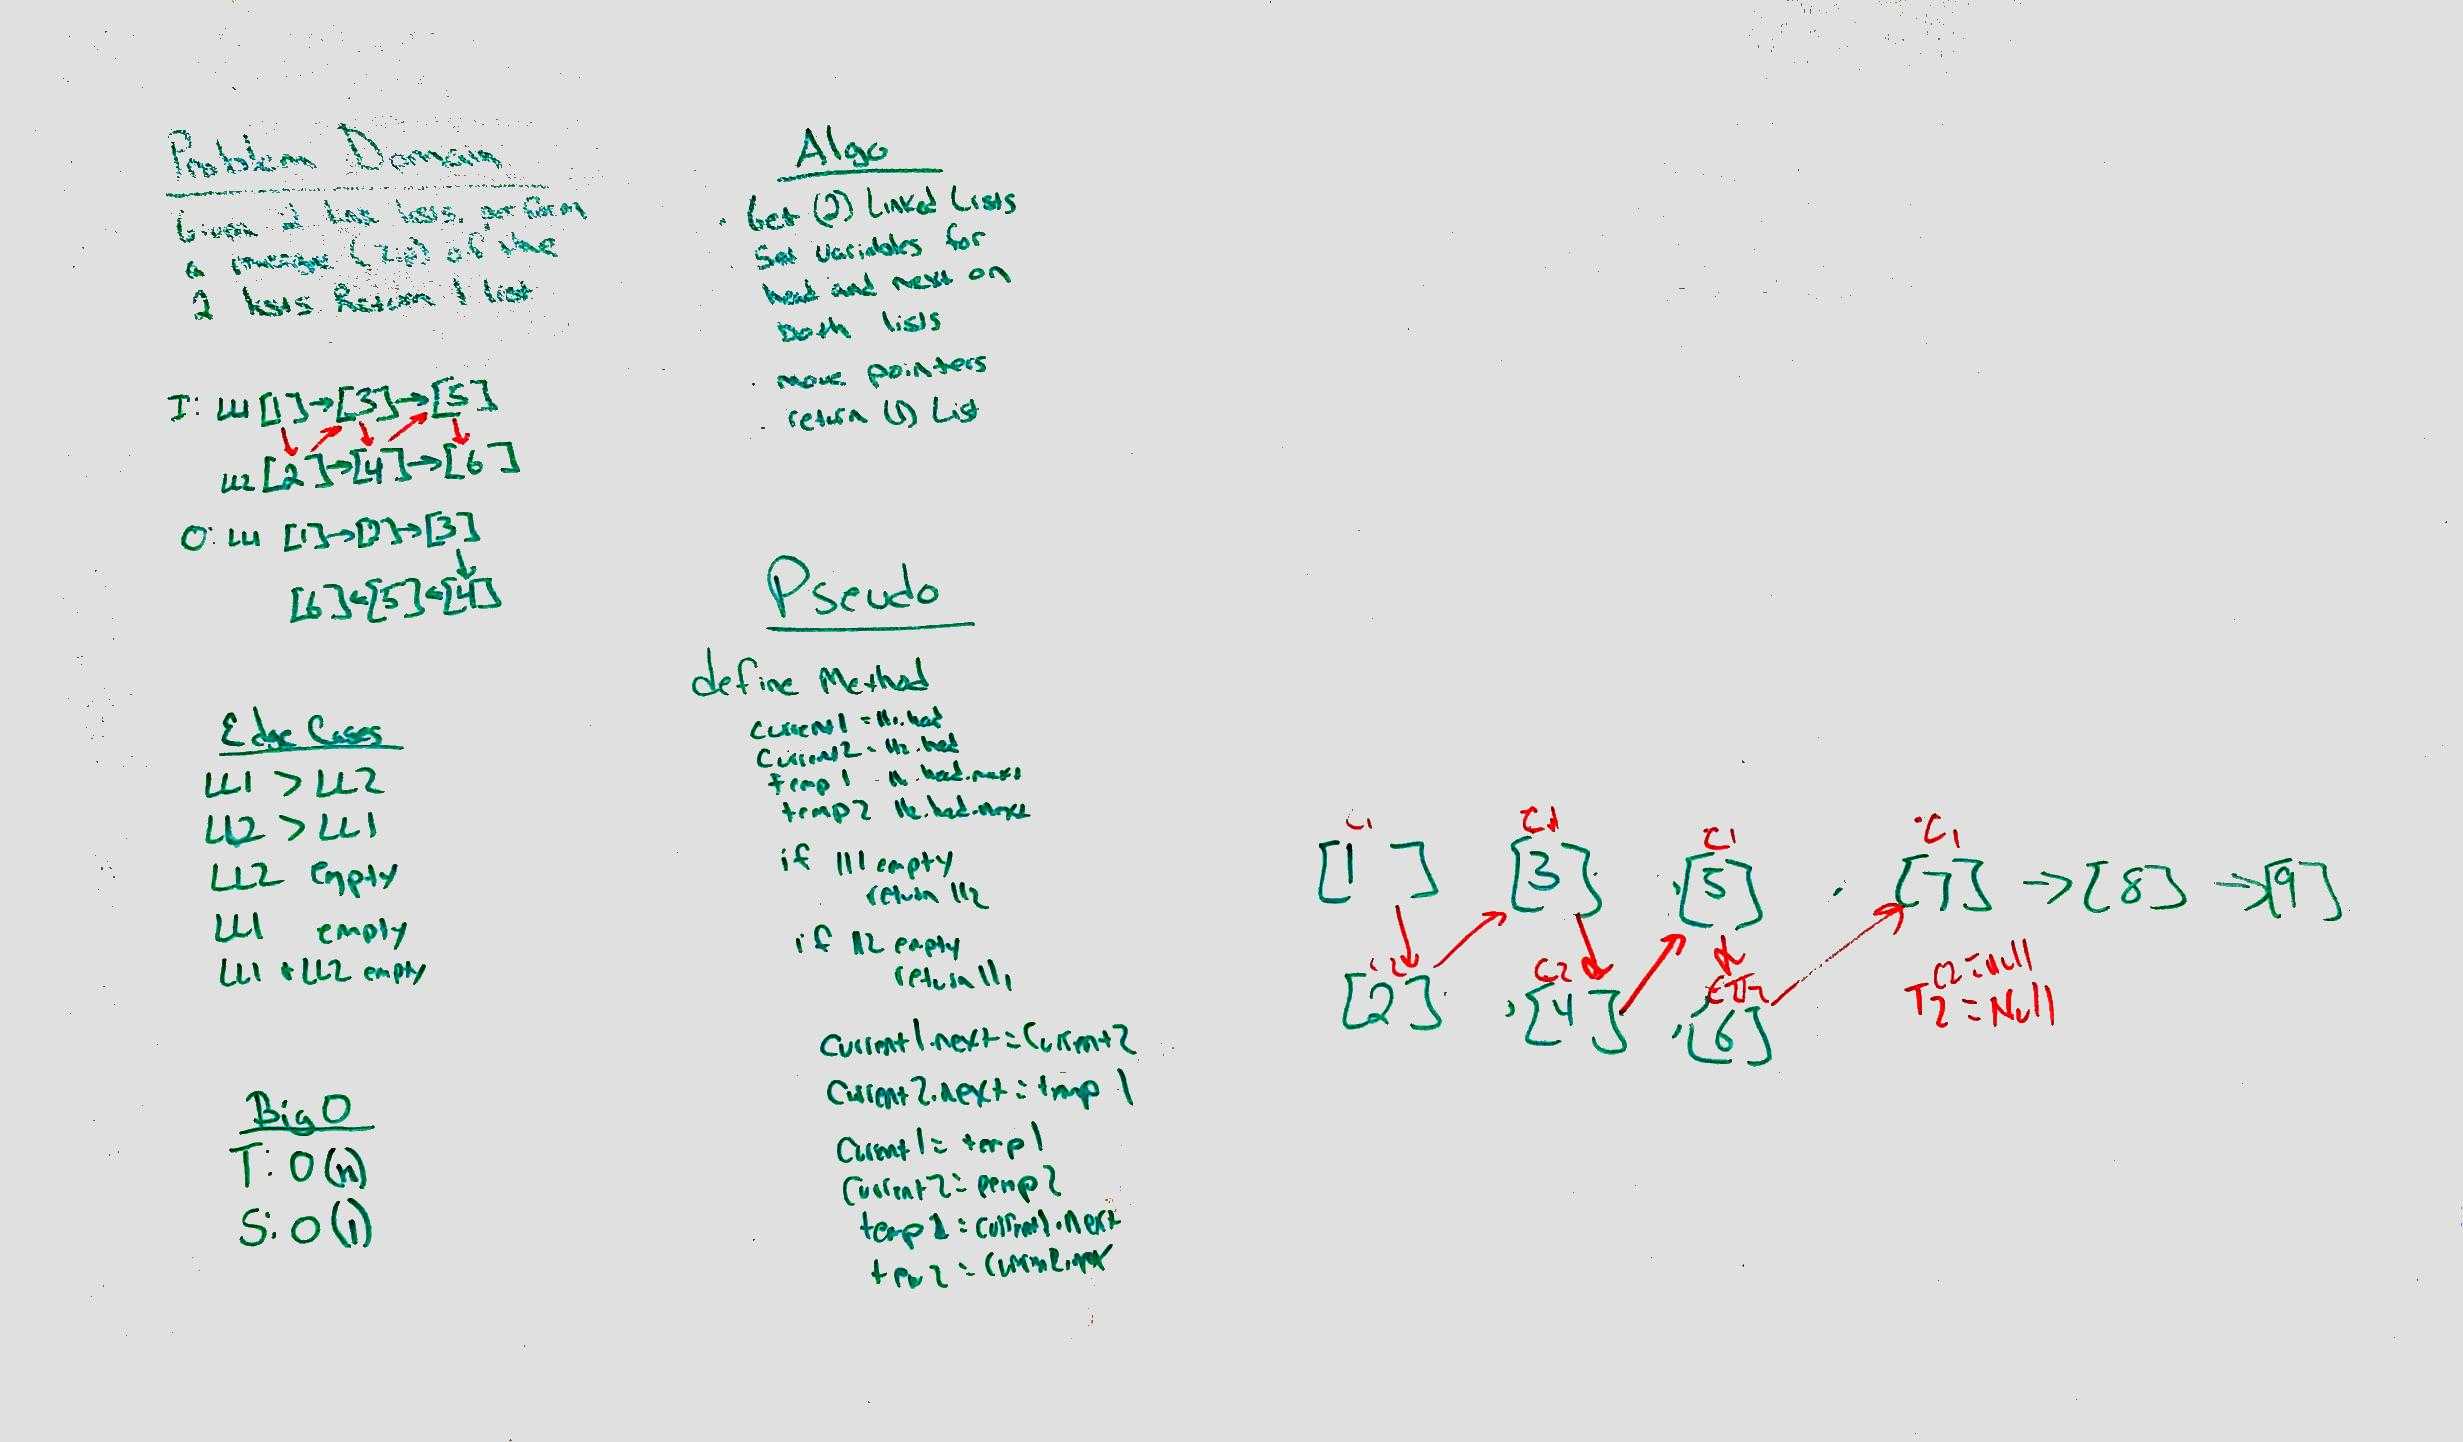 Problem Domain
Given 2 link lists, perform
a merge (zip) of the
2 lists Return 1 list
I: LL1 [1]→[3]→[5]
LL2 [2]→[4]→[6]
O: LL1 [1]→[2]→[3]
[6]←[5]←[4]
Edge Cases
LL1 > LL2
LL2 > LL1
LL2 empty
LL1 empty
LL1 + LL2 empty
Big O
T: O(n)
S: O(1)
Algo
Get (2) Linked Lists
Set variables for
head and next on
both lists
move pointers
return (1) List
Pseudo
define Method
current1 = ll1.head
current2 = ll2.head
temp1 ll1.head.next
temp2 ll2.head.next
if ll1 empty
return ll2
if ll2 empty
return ll1
current1.next = current2
current2.next = tmp1
current1 = temp1
current2 = pemp2
temp1 = current1.next
C1 C1 C1 C1
[1] [3] [5] [7] → [8] → [9]
C2 C2
[2] [4] [6]
C2 = null
T2 = Null